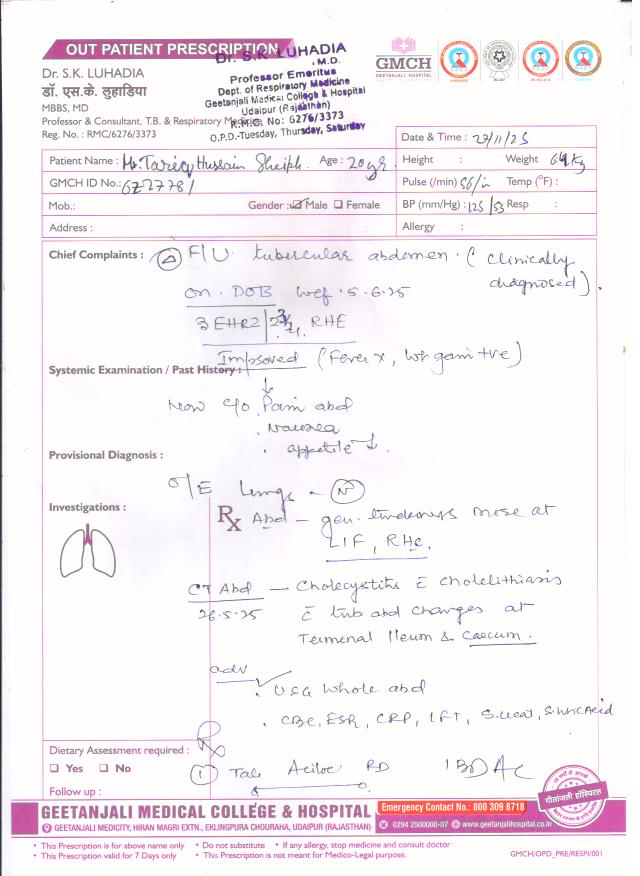 OUT PATIENT PRESCRIPTION
Dr. S.K LUHADIA
. M.D.
Professor Emeritus
Dept. of Respiratory Medicine
Geetanjali Medical College & Hospital
Udaipur (Rajasthan)
R.M.C. No: 6276/3373
O.P.D.-Tuesday, Thursday, Saturday
GMCH
GEETANJALI HOSPITAL
Dr. S.K. LUHADIA
डॉ. एस.के. लुहाडिया
MBBS, MD
Professor & Consultant, T.B. & Respiratory Medicine
Reg. No. : RMC/6276/3373
Date & Time : 27/11/25
Patient Name : Mr. Tareq Hussain Sheikh Age : 20 yr
Height : Weight 64 kg
GMCH ID No.: 6727781
Pulse (/min) 56/m Temp (°F) :
Mob.: Gender : ☑ Male ☐ Female
BP (mm/Hg) : 125/53 Resp :
Address :
Allergy :
Chief Complaints : Δ F/U tubercular abdomen. (clinically diagnosed).
on. DOB wef . 5-6-25
3 EHRZ | 2 3/4 RHE
Improved (Fever x, Wt gain +ve)
Systemic Examination / Past History :
↓
Now c/o . Pain abd
. Nausea
. appetite ↓.
Provisional Diagnosis :
O/E Lungs - N
Investigations :
Rx Abd - gen. tenderness more at
LIF, RHc.
CT Abd — Cholecystitis c̄ cholelithiasis
26-5-25 c̄ tub abd changes at
Terminal Ileum & Caecum.
adv
✓ . USG Whole abd
. CBC, ESR, CRP, LFT, S.ucat, S.Uric Acid
Rx
Dietary Assessment required :
☐ Yes ☐ No
① Tab Aciloc RD 1 BD AC
Follow up :
गीतांजली हॉस्पिटल
GEETANJALI MEDICAL COLLEGE & HOSPITAL
Emergency Contact No.: 800 309 8718
GEETANJALI MEDICITY, HIRAN MAGRI EXTN., EKLINGPURA CHOURAHA, UDAIPUR (RAJASTHAN)
0294 2500000-07 www.geetanjalihospital.co.in
• This Prescription is for above name only • Do not substitute • If any allergy, stop medicine and consult doctor
• This Prescription valid for 7 Days only • This Prescription is not meant for Medico-Legal purpose.
GMCH/OPD_PRE/RESPI/001